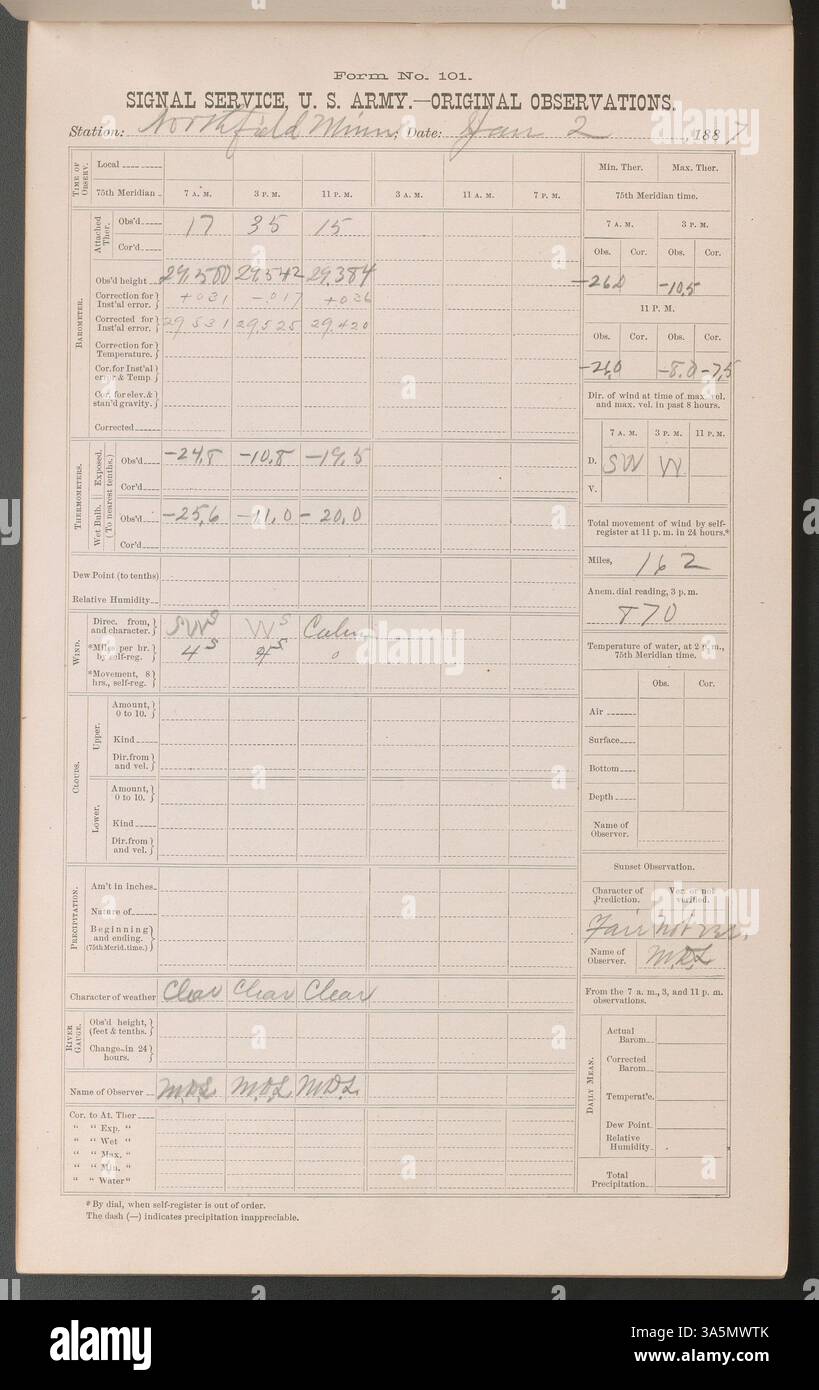 Form No. 101.
SIGNAL SERVICE, U. S. ARMY.—ORIGINAL OBSERVATIONS.
Station: Northfield Minn; Date: Jan 2, 1887
TIME OF OBSERV.
Local
75th Meridian 7 A. M. 3 P. M. 11 P. M. 3 A. M. 11 A. M. 7 P. M.
BAROMETER.
Attached Ther.
Obs'd 17 35 15
Cor'd
Obs'd height 29.500 29.542 29.384
Correction for Inst'al error. +031 -.017 +036
Corrected for Inst'al error. 29.531 29.525 29.420
Correction for Temperature.
Cor. for Inst'al error & Temp.
Cor. for elev. & stan'd gravity.
Corrected
THERMOMETERS.
(To nearest tenths.)
Exposed.
Obs'd -24.8 -10.8 -19.5
Cor'd
Wet Bulb.
Obs'd -25.6 -11.0 -20.0
Cor'd
Dew Point (to tenths)
Relative Humidity
WIND.
Direc. from, and character. SW S W S Calm
*Miles per hr. by self-reg. 4 S 4 S 0
*Movement, 8 hrs., self-reg.
CLOUDS.
Upper.
Amount, 0 to 10.
Kind
Dir. from and vel.
Lower.
Amount, 0 to 10.
Kind
Dir. from and vel.
PRECIPITATION.
Am't in inches
Nature of
Beginning and ending.
(75th Merid. time.)
Character of weather Clear Clear Clear
RIVER GAUGE.
Obs'd height, (feet & tenths.)
Change in 24 hours.
Name of Observer M.D.L M.D.L M.D.L.
Cor. to At. Ther
" " Exp. "
" " Wet "
" " Max. "
" " Min. "
" " Water"
Min. Ther. Max. Ther.
75th Meridian time.
7 A. M. 3 P. M.
Obs. Cor. Obs. Cor.
-26.0 -10.5
11 P. M.
Obs. Cor. Obs. Cor.
-8.0 -7.5
Dir. of wind at time of max. vel. and max. vel. in past 8 hours.
7 A. M. 3 P. M. 11 P. M.
D. SW W
V.
Total movement of wind by self-register at 11 p. m. in 24 hours.*
Miles, 162
Anem. dial reading, 3 p. m.
870
Temperature of water, at 2 p. m., 75th Meridian time.
Obs. Cor.
Air
Surface
Bottom
Depth
Name of Observer.
Sunset Observation.
Character of Prediction. Ver. or not verified.
Fair not ver.
Name of Observer. M.D.L
From the 7 a. m., 3, and 11 p. m. observations.
DAILY MEAN.
Actual Barom.
Corrected Barom.
Temperat'e.
Dew Point.
Relative Humidity
Total Precipitation
*By dial, when self-register is out of order.
The dash (—) indicates precipitation inappreciable.
alamy
Image ID: 3A5MWTK
www.alamy.com